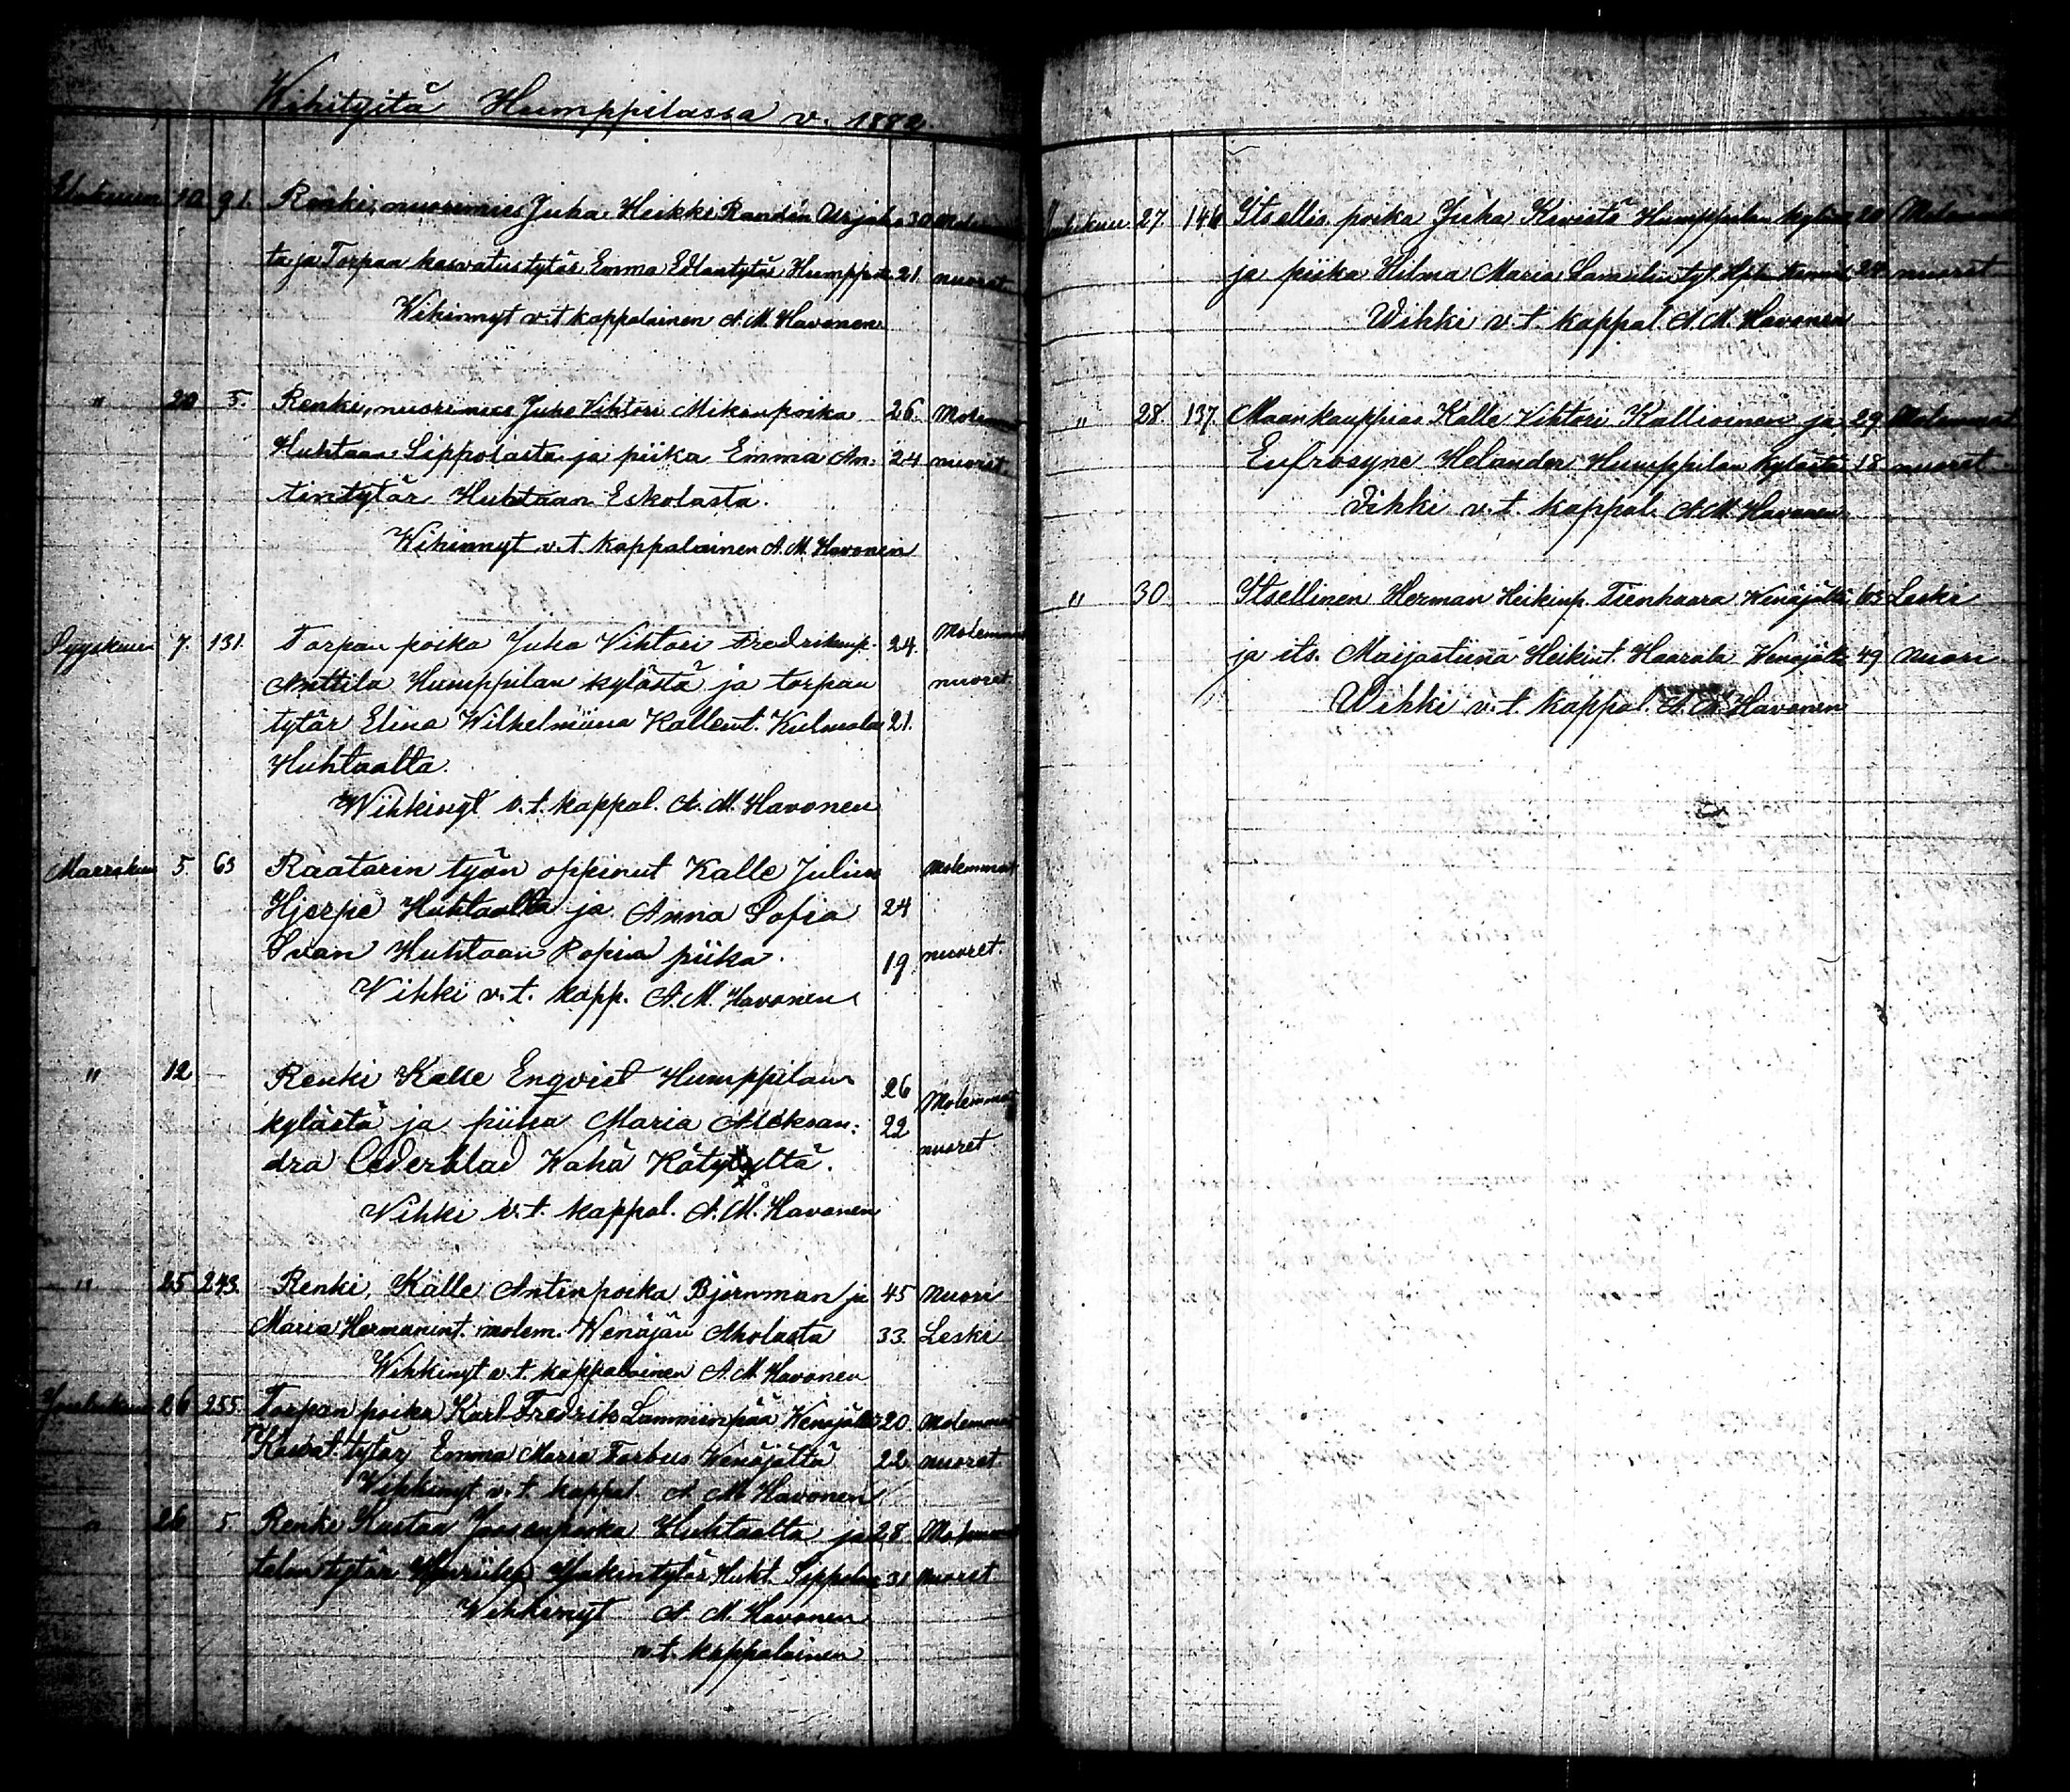 Wihityitä Humppilassa v. 1882.
Elokuun 10 91. Renki, nuorimies Juha Heikki Randén 30 Molemmat
ta ja Torpan kasvatustytär Emma Humppila 21. nuoret
Wihinnyt v.t. kappalainen A. M. Havonen
" 20 5. Renki, nuorimies Juho Vihtori Mikonpoika 26. Molemmat
Huhtaan Sippolasta ja piika Emma An- 24 nuoret.
tintytär Huhtaan Eskolasta.
Wihinnyt v.t. kappalainen A. M. Havonen
Syyskuun 7. 131. Torpan poika Juho Vihtori Fredrikinp. 24. Molemmat
Anttila Humppilan kylästä ja torpan nuoret
tytär Elina Wilhelmiina Kallent. Kulmala 21.
Huhtaalta.
Wihkinyt v.t. kappal. A. M. Havonen
Marraskuu 5 63 Raatarin työn oppinut Kalle Julius Molemmat
Hjerpe Huhtaalta ja Anna Sofia 24
Svan Huhtaan Ropin piika. 19 nuoret.
Vihki v.t. kapp. A. M. Havonen
" 12 Renki Kalle Enqvist Humppilan 26 Molemmat
kylästä ja piika Maria Aleksan- 22
dra Cederblad Wähä nuoret.
Vihki v.t. kappal. A. M. Havonen
" 25 243. Renki, Kalle Antinpoika Björnman ja 45 Nuori
Maria Hermanint. molem. Wenäjän Aholasta 33. Leski
Wihkinyt v.t. kappalainen A. M. Havonen
Joulukuu 26 255. Torpan poika Karl Fredrik Lamminpää Wenäjältä 20. Molemmat
Kasvat. tytär Emma Maria Forbus Wenäjältä 22. nuoret
Vihkinyt v.t. kappal. A. M. Havonen
" 26 5 Renki Kustaa Joosenpoika Huhtaalta ja 28. Molemmat
talon tytär Henriika Huht. Sippolan 31 nuoret
Wihkinyt A. M. Havonen
v.t. kappalainen
Joulukuu 27. 146 Itsellis. poika Juha Kivistö Humppilan kylästä 20 Molemmat
ja piika Hilma Maria Samulintyt. 24 nuoret
Wihki v.t. kappal. A. M. Havonen
" 28. 137. Maankauppias Kalle Vihtori Kallioinen ja 29 Molemmat
Eufrosyne Helander Humppilan kylästä 18 nuoret.
Vihki v.t. kappal. A. M. Havonen
" 30. Itsellinen Herman Heikinp. Tienhaara Wenäjältä 63 Leski
ja its. Maijastiina Heikint. Haarala Wenäjältä 49 Nuori
Wihki v.t. kappal. A. M. Havonen